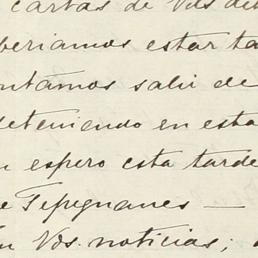 cartas de Vds de
beriamos estar ta
ntamos salir de
deteniendo en esta
n espero esta tarde
e Tepegnanes —
n Vds. noticias;